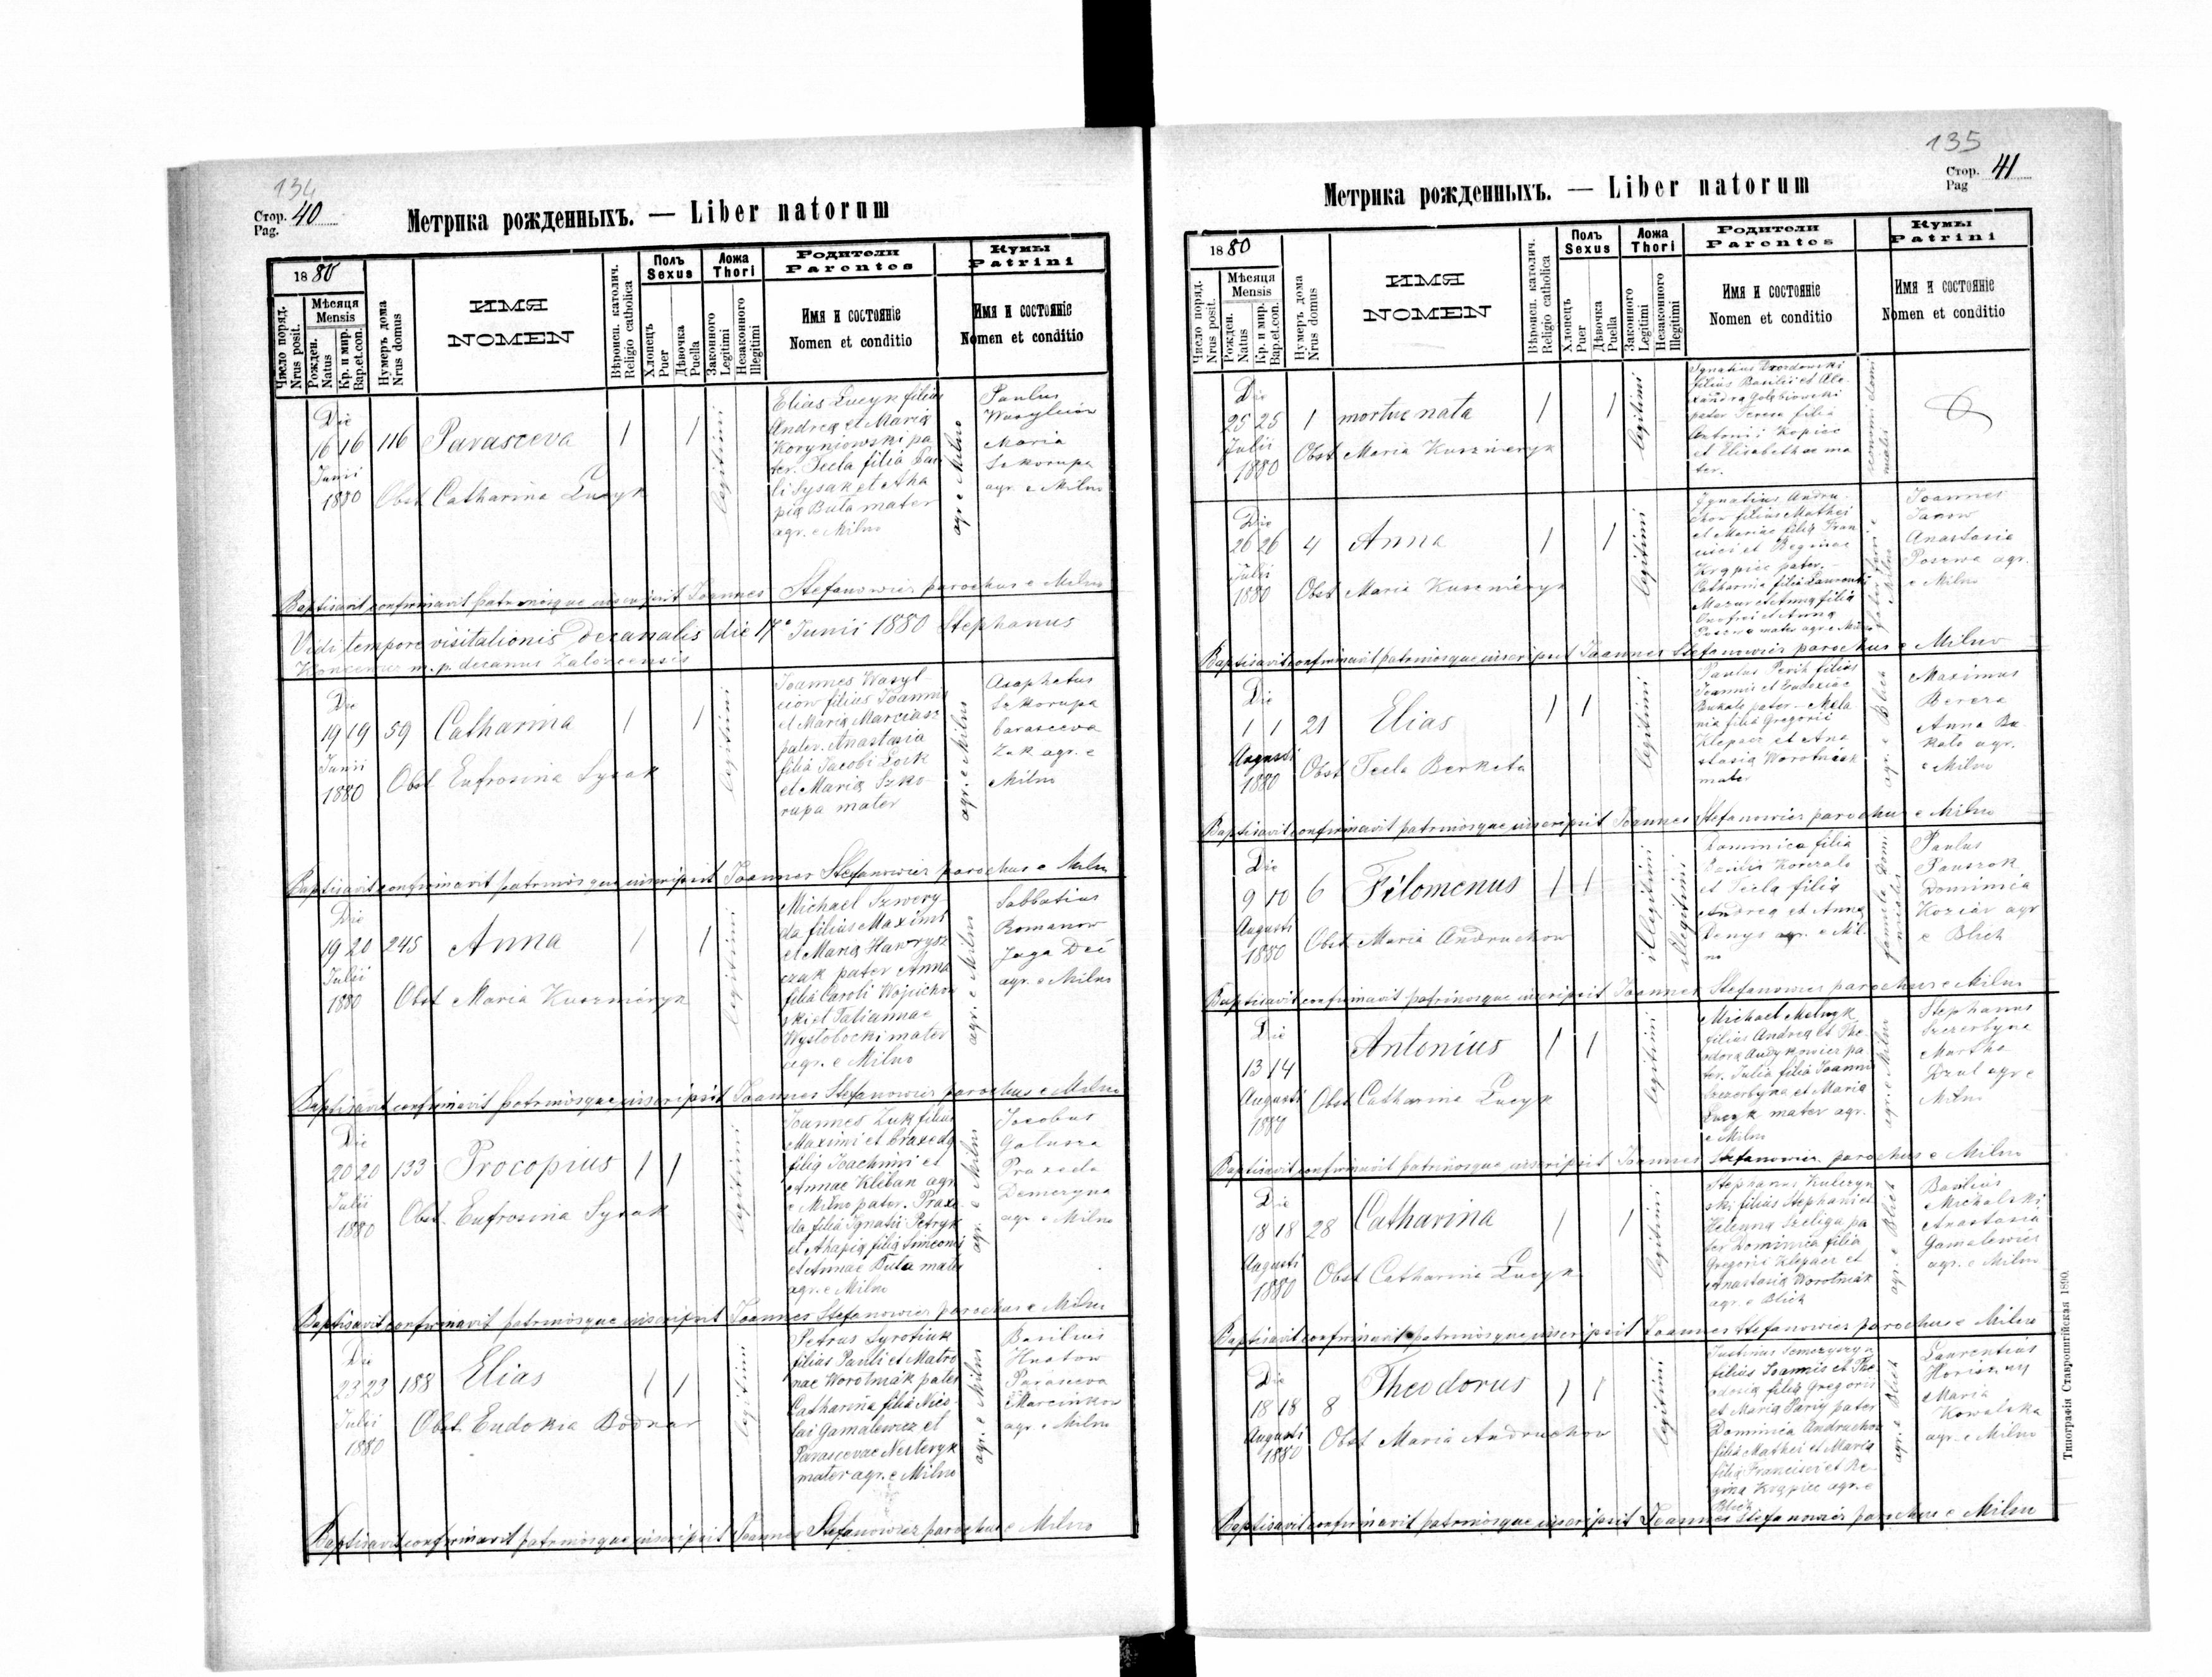 134
Стор. 40
Pag.
Метрика рожденныхъ. — Liber natorum
1880
Число поряд.
Nrus posit.
Мѣсяца
Mensis
Рожден.
Natus
Кр. и мир.
Bap.et.con.
Нумеръ дома
Nrus domus
ИМЯ
NOMEN
Вѣроисп. католич.
Religio catholica
Полъ
Sexus
Хлопецъ
Puer
Дѣвочка
Puella
Ложа
Thori
Законного
Legitimi
Незаконного
Illegitimi
Родители
Parentes
Имя и состоянiе
Nomen et conditio
Кумы
Patrini
Имя и состоянiе
Nomen et conditio
Die
16 16 116 Parasceva 1 1
Junii
1880
Obst Catharina Łucyk
legitimi
Elias Łucyk filius
Andreą et Marią
Koryniowski pa
ter. Tecla filia Pau
li Sysak et Aha
pią Buta mater
agr. e Milno
agr. e Milno
Paulus
Wasylciów
Maria
Szkorupa
agr. e Milno
Baptisavit confirmavit patrinosque inscripsit Joannes Stefanowicz parochus e Milno
Vidi tempore visitationis Decanalis die 17ª Junii 1880 Stephanus
m. p. decanus Zalozcensis
Die
19 19 59 Catharina 1 1
Junii
1880
Obst Eufrosina Sysak
legitimi
Joannes Wasyl
ciow filius Joannis
et Marią Marciasz
pater. Anastasia
filia Jacobi
et Marią Szko
rupa mater
agr. e Milno
Asaphatus
Szkorupa
Parasceva
Żuk agr. e
Milno
Baptisavit confirmavit patrinosque inscripsit Joannes Stefanowicz parochus e Milno
Die
19 20 245 Anna 1 1
Julii
1880
Obst Maria Kuszmiryk
legitimi
Michael Szwery
da filius Maximi
et Marią Hawrysz
czak pater Anna
filia Caroli Wojcichow
ski et Tatiannae
Wystobocki mater
agr. e Milno
agr. e Milno
Sabbatius
Romanow
Jaga Deć
agr. e Milno
Baptisavit confirmavit patrinosque inscripsit Joannes Stefanowicz parochus e Milno
Die
20 20 133 Procopius 1 1
Julii
1880
Obst. Eufrosina Sysak
legitimi
Joannes Żuk filius
Maximi et Praxedą
filią Joachimi et
Annae Kliban agr.
e Milno pater. Praxe
da filia Ignatii Petryk
et Ahapią filią Simeonis
et Annae Buta mater
agr. e Milno
agr. e Milno
Jacobus
Gałusza
Praxeda
Demeryna
agr. e Milno
Baptisavit confirmavit patrinosque inscripsit Joannes Stefanowicz parochus e Milno
Die
23 23 188 Elias 1 1
Julii
1880
Obst. Eudokia Bodnar
legitimi
Petrus Syrotiuk
filius Pauli et Matro
nae Worotniak pater
Catharina filia Nico
lai Gamalewicz et
Parascevae Nesteryk
mater agr. e Milno
agr. e Milno
Basilius
Hnatow
Parasceva
Marcinkow
agr. e Milno
Baptisavit confirmavit patrinosque inscripsit Joannes Stefanowicz parochus e Milno
135
Стор. 41
Pag
Метрика рожденныхъ. — Liber natorum
1880
Число поряд.
Nrus posit.
Мѣсяца
Mensis
Рожден.
Natus
Кр. и мир.
Bap.et.con.
Нумеръ дома
Nrus domus
ИМЯ
NOMEN
Вѣроисп. католич.
Religio catholica
Полъ
Sexus
Хлопецъ
Puer
Дѣвочка
Puella
Ложа
Thori
Законного
Legitimi
Незаконного
Illegitimi
Родители
Parentes
Имя и состоянiе
Nomen et conditio
Кумы
Patrini
Имя и состоянiе
Nomen et conditio
Die
25 25 1 mortue nata 1 1
Julii
1880
Obst Maria Kuszmiryk
legitimi
Ignatius
filius Basilii et Ale
xandrą Gołębiowski
pater Teresa filia
Antonii Kopiec
et Elisabethae ma
ter.
Die
26 26 4 Anna 1 1
Julii
1880
Obst Maria Kuszmiryk
legitimi
Ignatius Andru
chow filius Mathei
et Mariae filią Fran
cisci et Reginae
Krąpiec pater.
Catharina filia Laurentii
Mazur et Anną filią
Onofrii et Anną
Poszwa mater agr. e Milno
Joannes
Janow
Anastasia
Poszwa agr.
e Milno
Baptisavit confirmavit patrinosque inscripsit Joannes Stefanowicz parochus e Milno
Die
1 1 21 Elias 1 1
Augusti
1880
Obst Tecla Berketa
legitimi
Paulus Perih filius
Joannis et Eudoxiae
Bukało pater – Mela
nia filia Gregorii
Klepacz et Ana
stasią Worotniak
mater
agr. e Blich
Maximus
Bereza
Anna Bu
kało agr.
e Milno
Baptisavit confirmavit patrinosque inscripsit Joannes Stefanowicz parochus e Milno
Die
9 10 6 Filomenus 1 1
Augusti
1880
Obst Maria Andruchow
illegitimi
illegitimi
Dominica filia
Danilis
et Tecla filią
Andreą et Anną
Denys agr. e Mil
no
Paulus
Pauszok
Dominica
Koziar agr
e Blich
Baptisavit confirmavit patrinosque inscripsit Joannes Stefanowicz parochus e Milno
Die
13 14 Antonius 1 1
Augusti
1880
Obst Catharina Łucyk
legitimi
Michael Melnyk
filius Andreą et The
odorą Andykowicz pa
ter. Julia filia Joannis
Szczerbyna et Marią
Łucyk mater agr.
e Milno
agr. e Milno
Stephanus
Szczerbyna
Martha
Dzul agr e
Milno
Baptisavit confirmavit patrinosque inscripsit Joannes Stefanowicz parochus e Milno
Die
18 18 28 Catharina 1 1
Augusti
1880
Obst Catharina Łucyk
legitimi
Stephanus Kulczyn
ski filius Stephani et
Helenną Szeliga pa
ter Dominica filia
Gregorii Klepacz et
Anastasią Worotniak
agr. e Blich
agr. e Blich
Basilius
Michalski
Anastasia
Gamalewicz
agr. e Milno
Baptisavit confirmavit patrinosque inscripsit Joannes Stefanowicz parochus e Milno
Die
18 18 8 Theodorus 1 1
Augusti
1880
Obst Maria Andruchow
legitimi
Justinus Semczyszyn
filius Joannis et The
odosią filią Gregorii
et Marią Pariy pater
Dominica Andruchow
filia Mathei et Marią
filią Francisci et Re
giną Krąpiec agr. e
Blich
agr. e Blich
Laurentius
Horiszny
Maria
Kowalska
agr. e Milno
Baptisavit confirmavit patrinosque inscripsit Joannes Stefanowicz parochus e Milno
Типографiя Ставропигiйская 1890.